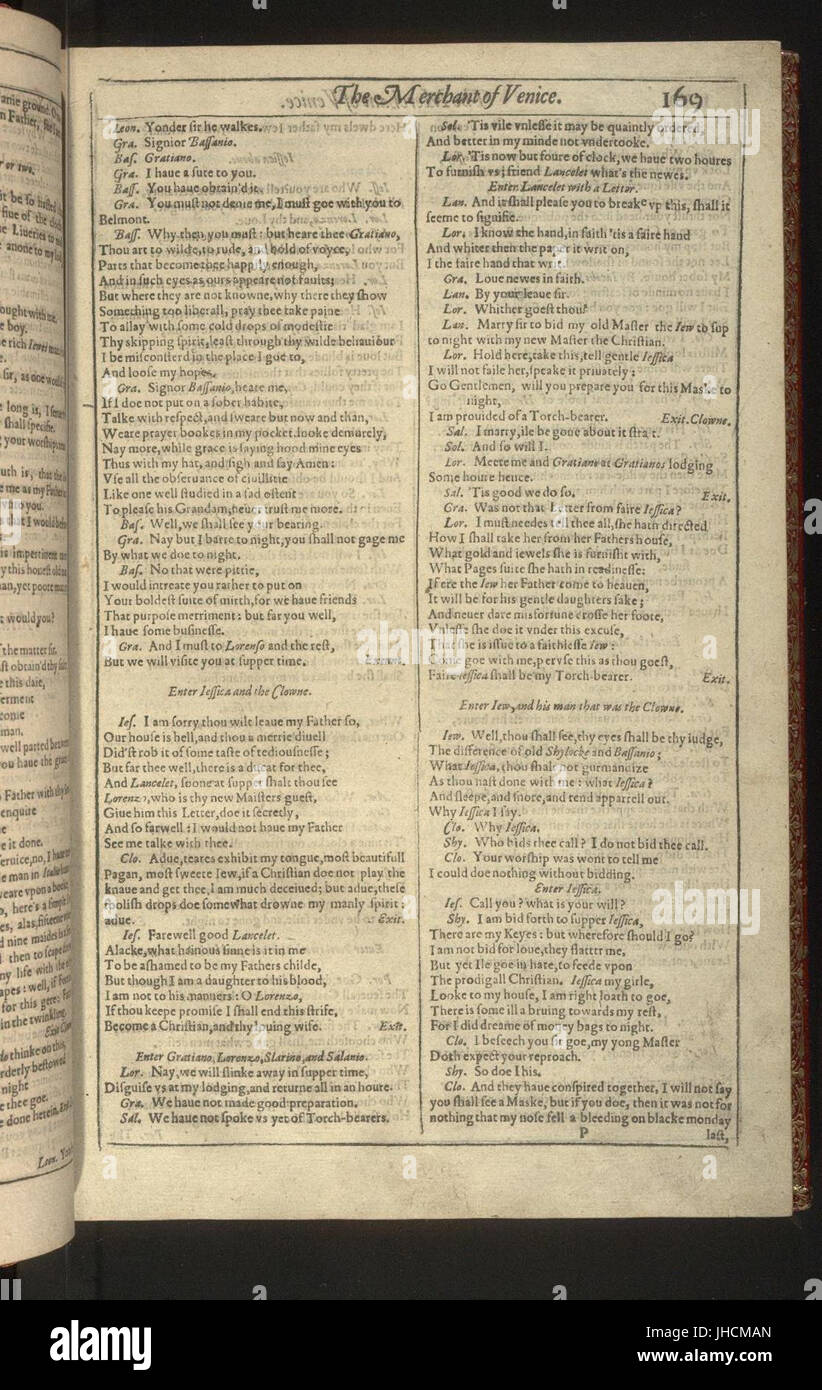 The Merchant of Venice.
169
Leon. Yonder sir he walkes.
Gra. Signior Bassanio.
Bas. Gratiano.
Gra. I haue a sute to you.
Bass. You haue obtain'd it.
Gra. You must not denie me, I must goe with you to
Belmont.
Bass. Why then you must: but heare thee Gratiano,
Thou art to wilde, to rude, and bold of voyce,
Parts that become thee happily enough,
And in such eyes as ours appeare not faults;
But where they are not knowne, why there they show
Something too liberall, pray thee take paine
To allay with some cold drops of modestie
Thy skipping spirit, least through thy wilde behauiour
I be misconsterd in the place I goe to,
And loose my hopes.
Gra. Signor Bassanio, heare me,
If I doe not put on a sober habite,
Talke with respect, and sweare but now and than,
Weare prayer bookes in my pocket, looke demurely,
Nay more, while grace is saying hood mine eyes
Thus with my hat, and sigh and say Amen:
Vse all the obseruance of ciuillitie
Like one well studied in a sad ostent
To please his Grandam, neuer trust me more.
Bas. Well, we shall see your bearing.
Gra. Nay but I barre to night, you shall not gage me
By what we doe to night.
Bas. No that were pittie,
I would intreate you rather to put on
Your boldest suite of mirth, for we haue friends
That purpose merriment: but far you well,
I haue some businesse.
Gra. And I must to Lorenso and the rest,
But we will visite you at supper time. Exeunt.
Enter Iessica and the Clowne.
Ies. I am sorry thou wilt leaue my Father so,
Our house is hell, and thou a merrie diuell
Did'st rob it of some taste of tediousnesse;
But far thee well, there is a ducat for thee,
And Lancelet, soone at supper shalt thou see
Lorenzo, who is thy new Maisters guest,
Giue him this Letter, doe it secretly,
And so farwell: I would not haue my Father
See me talke with thee.
Clo. Adue, teares exhibit my tongue, most beautifull
Pagan, most sweete Iew, if a Christian doe not play the
knaue and get thee, I am much deceiued; but adue, these
foolish drops doe somewhat drowne my manly spirit:
adue. Exit.
Ies. Farewell good Lancelet.
Alacke, what hainous sinne is it in me
To be ashamed to be my Fathers childe,
But though I am a daughter to his blood,
I am not to his manners: O Lorenzo,
If thou keepe promise I shall end this strife,
Become a Christian, and thy louing wife. Exit.
Enter Gratiano, Lorenzo, Slarino, and Salanio.
Lor. Nay, we will slinke away in supper time,
Disguise vs at my lodging, and returne all in an houre.
Gra. We haue not made good preparation.
Sal. We haue not spoke vs yet of Torch-bearers.
Sol. 'Tis vile vnlesse it may be quaintly ordered,
And better in my minde not vndertooke.
Lor. 'Tis now but foure of clock, we haue two houres
To furnish vs; friend Lancelet what's the newes.
Enter Lancelet with a Letter.
Lan. And it shall please you to breake vp this, shall it
seeme to signifie.
Lor. I know the hand, in faith 'tis a faire hand
And whiter then the paper it writ on,
I the faire hand that writ.
Gra. Loue newes in faith.
Lan. By your leaue sir.
Lor. Whither goest thou?
Lan. Marry sir to bid my old Master the Iew to sup
to night with my new Master the Christian.
Lor. Hold here, take this, tell gentle Iessica
I will not faile her, speake it priuately:
Go Gentlemen, will you prepare you for this Maske to
night,
I am prouided of a Torch-bearer. Exit. Clowne.
Sal. I marry, ile be gone about it strait.
Sol. And so will I.
Lor. Meete me and Gratiano at Gratianos lodging
Some houre hence.
Sal. 'Tis good we do so. Exit.
Gra. Was not that Letter from faire Iessica?
Lor. I must needes tell thee all, she hath directed
How I shall take her from her Fathers house,
What gold and iewels she is furnisht with,
What Pages suite she hath in readinesse:
If ere the Iew her Father come to heauen,
It will be for his gentle daughters sake;
And neuer dare misfortune crosse her foote,
Vnlesse she doe it vnder this excuse,
That she is issue to a faithlesse Iew:
Come goe with me, pervse this as thou goest,
Faire Iessica shall be my Torch-bearer. Exit.
Enter Iew, and his man that was the Clowne.
Iew. Well, thou shall see, thy eyes shall be thy iudge,
The difference of old Shylocke and Bassanio;
What Iessica, thou shalt not gurmandize
As thou hast done with me: what Iessica?
And sleepe, and snore, and rend apparrell out.
Why Iessica I say.
Clo. Why Iessica.
Shy. Who bids thee call? I do not bid thee call.
Clo. Your worship was wont to tell me
I could doe nothing without bidding.
Enter Iessica.
Ies. Call you? what is your will?
Shy. I am bid forth to supper Iessica,
There are my Keyes: but wherefore should I go?
I am not bid for loue, they flatter me,
But yet Ile goe in hate, to feede vpon
The prodigall Christian. Iessica my girle,
Looke to my house, I am right loath to goe,
There is some ill a bruing towards my rest,
For I did dreame of money bags to night.
Clo. I beseech you sir goe, my yong Master
Doth expect your reproach.
Shy. So doe I his.
Clo. And they haue conspired together, I will not say
you shall see a Maske, but if you doe, then it was not for
nothing that my nose fell a bleeding on blacke monday
P last,
alamy
alamy stock photo
JHCMAN
www.alamy.com